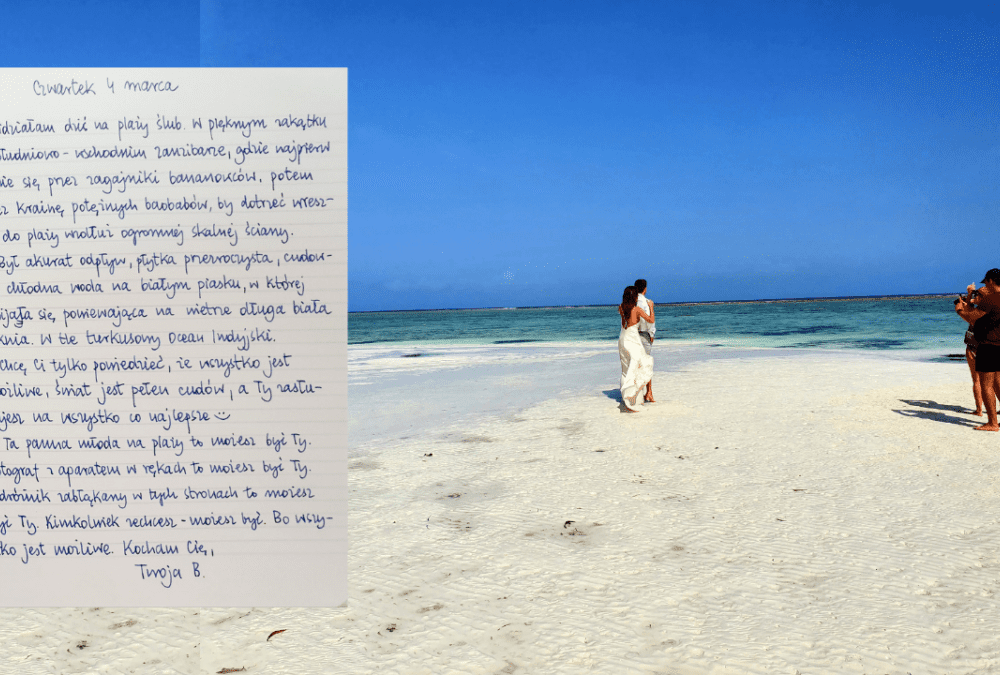 Czwartek 4 marca
działam dziś na plaży ślub. W pięknym zakątku
łudniowo-wschodnim Zanzibarze, gdzie najpierw
nie się przez zagajniki bananowców, potem
z Krainę potężnych baobabów, by dotrzeć wresz-
do plaży wzdłuż ogromnej skalnej ściany.
Był akurat odpływ, płytka przezroczysta, cudow-
chłodna woda na białym piasku, w której
ijała się, powiewająca na wietrze długa biała
knia. W tle turkusowy Ocean Indyjski.
Chcę Ci tylko powiedzieć, że wszystko jest
ożliwe, świat jest pełen cudów, a Ty zasłu-
jesz na wszystko co najlepsze
Ta panna młoda na plaży to możesz być Ty.
tograf z aparatem w rękach to możesz być Ty.
dróżnik zabłąkany w tych stronach to możesz
yć Ty. Kimkolwiek zechcesz - możesz być. Bo wszy-
ko jest możliwe. Kocham Cię,
Twoja B.